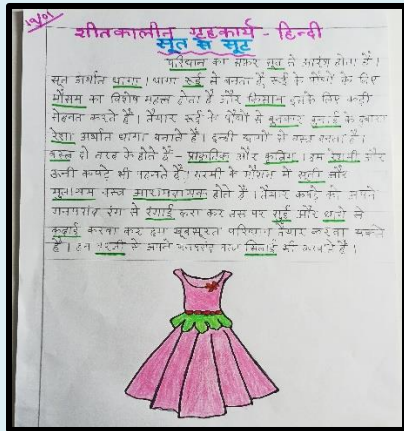 10/01
शीतकालीन गृहकार्य - हिन्दी
सूत से सूट
परिधान का सफर सूत से आरंभ होता है।
सूत अर्थात धागा। धागा रूई से बनता है, रूई के पौधों के लिए
मौसम का विशेष महत्व होता है और किसान इनके लिए कड़ी
मेहनत करते हैं। तैयार रूई के पौधों से बुनकर बुनाई के द्वारा
रेशा अर्थात धागा बनाते हैं। इन्हीं धागों से वस्त्र बनता है।
वस्त्र दो तरह के होते हैं - प्राकृतिक और कृत्रिम। हम रेशमी और
ऊनी कपड़े भी पहनते हैं। गरमी के मौसम में सूती और
मुलायम वस्त्र आरामदायक होते हैं। तैयार कपड़े को अपने
मनपसंद रंग से रंगाई करा कर उस पर सुई और धागे से
कढ़ाई करवा कर हम खूबसूरत परिधान तैयार करवा सकते
हैं। हम दरजी से अपने मनपसंद वस्त्र सिलाई भी करवाते हैं।